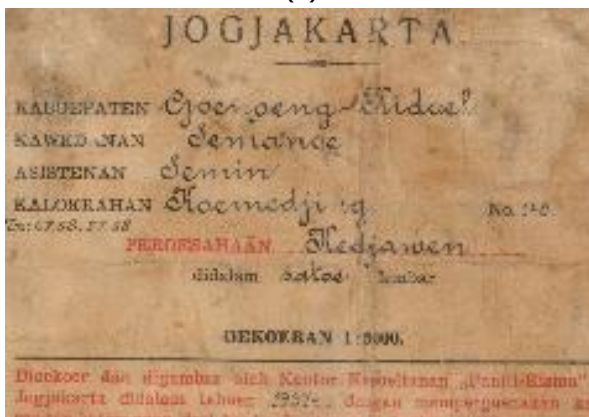 JOGJAKARTA
KABOEPATEN Goenoeng-Kidoel
KAWEDANAN Semanoe
ASISTENAN Semin
KALOERAHAN Koemedjing No.
PEROESAHAÄN Kedjawen
didalam satoe lembar
OEKOERAN 1:5000.
Dioekoer dan digambar oleh Kantor Kepoeitanan „Paniti-Kismo"
Jogjakarta didalam tahoen dengan mempergoenakan